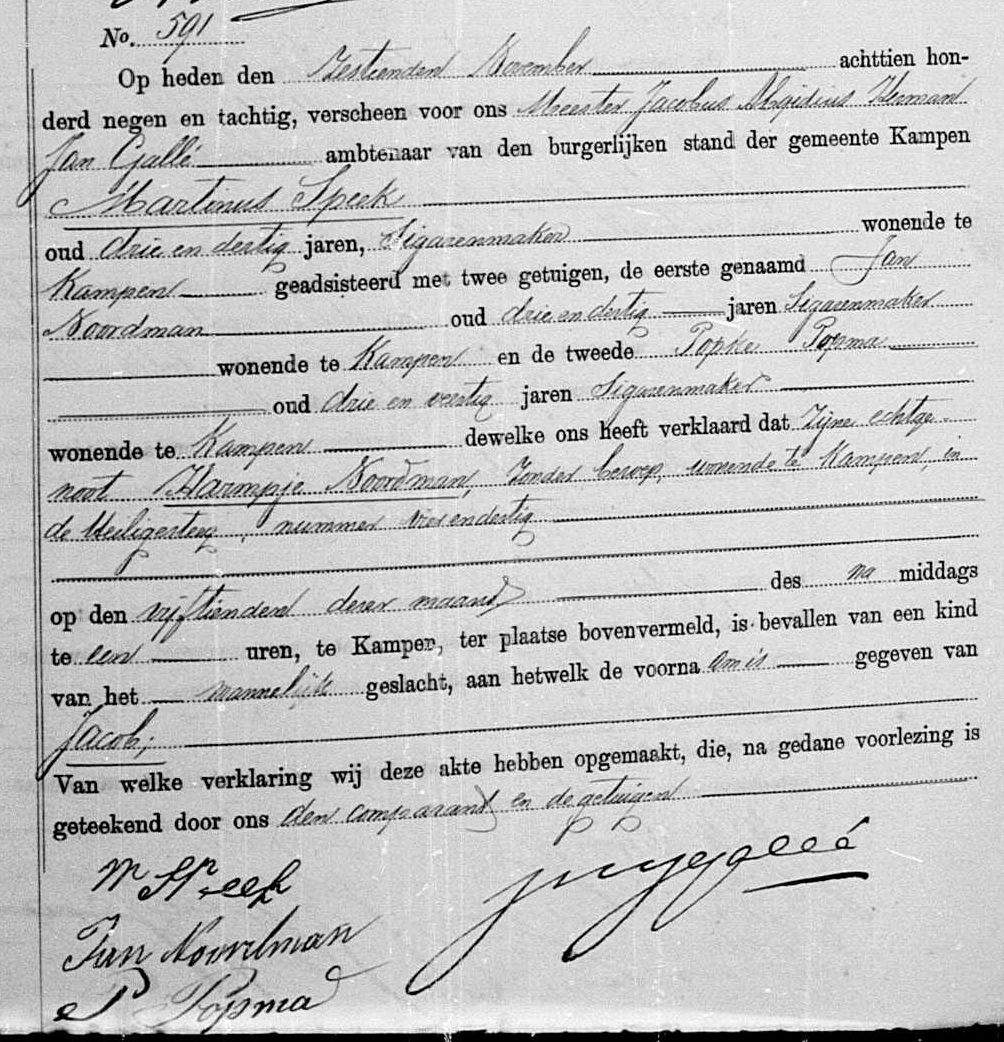 No. 591
Op heden den Zestienden November achttien hon-
derd negen en tachtig, verscheen voor ons Meester Jacobus Aegidius Herman
Jan Gallé ambtenaar van den burgerlijken stand der gemeente Kampen
Martinus Speek
oud drie en dertig jaren, Sigarenmaker wonende te
Kampen geadsisteerd met twee getuigen, de eerste genaamd Jan
Noordman oud drie en dertig jaren Sigarenmaker
wonende te Kampen en de tweede Popke Popma
oud drie en veertig jaren Sigarenmaker
wonende te Kampen dewelke ons heeft verklaard dat Zijne echtge-
noot Harmpje Noordman, Zonder beroep, wonende te Kampen, in
de Heiligesteeg, nummer vier en dertig
op den vijftienden dezer maand des na middags
te een uren, te Kampen, ter plaatse bovenvermeld, is bevallen van een kind
van het mannelijk geslacht, aan hetwelk de voorna am is gegeven van
Jacob;
Van welke verklaring wij deze akte hebben opgemaakt, die, na gedane voorlezing is
geteekend door ons den comparant en de getuigen
M Speek
Jan Noordman
P Popma